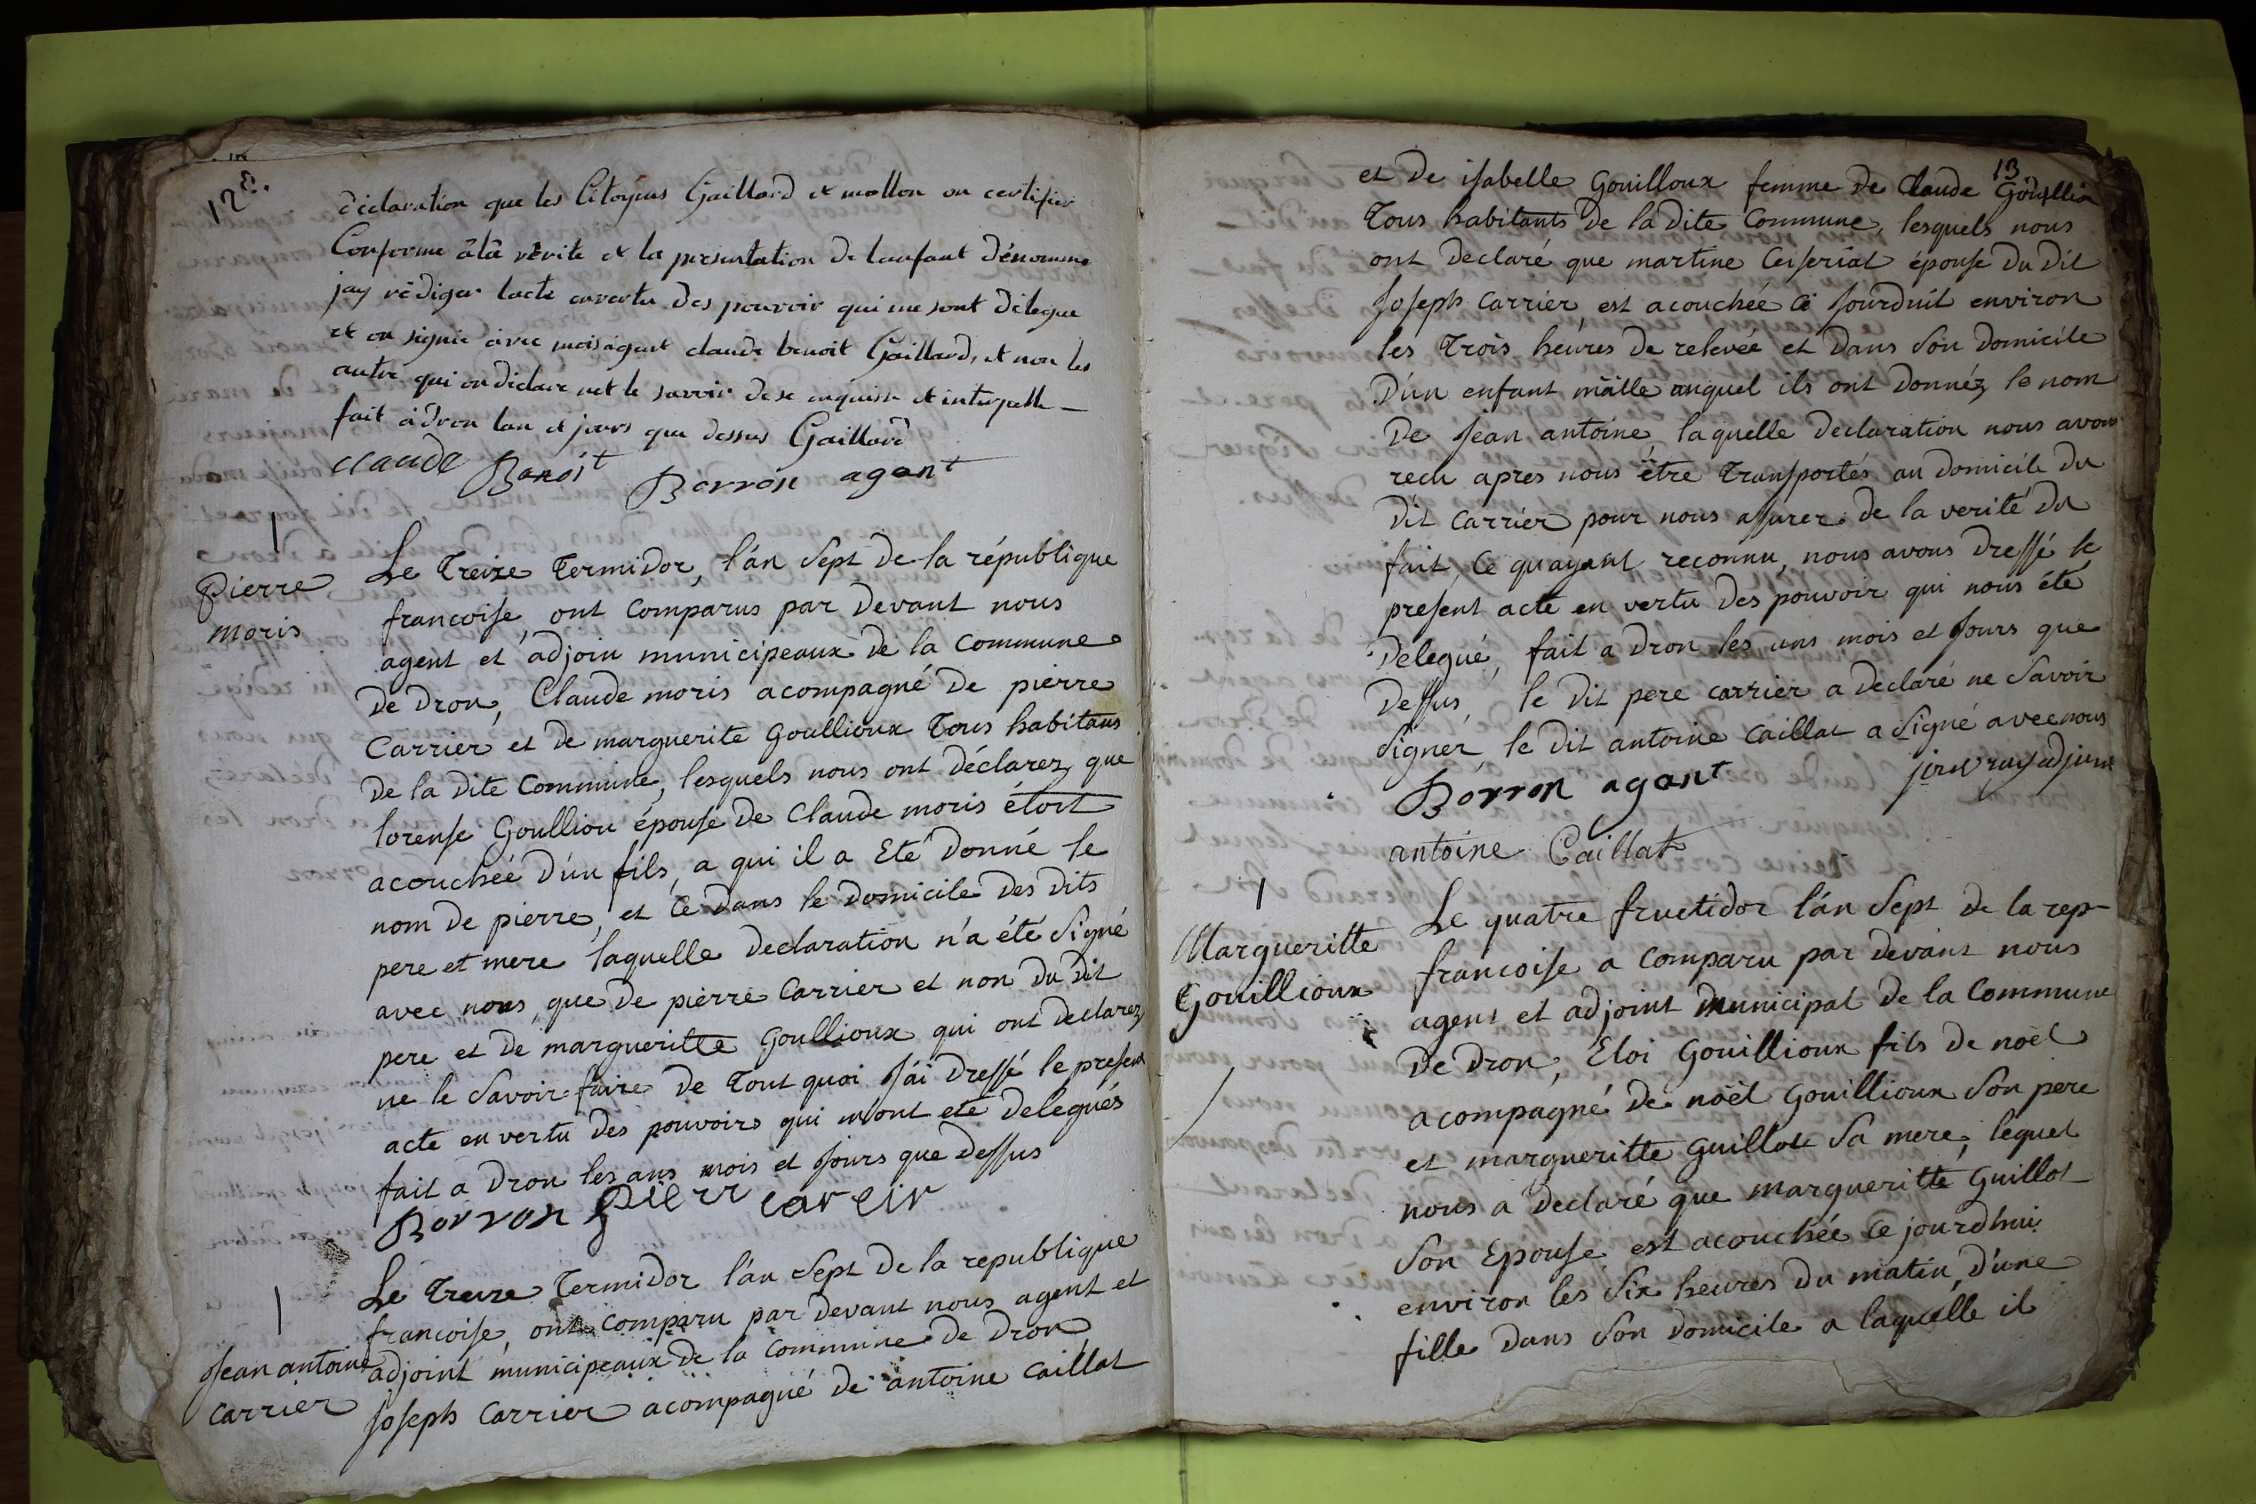 12e.
déclaration que les Citoyens Gaillard et mollon on certifier
Conforme àlà vérité et la presentation de lenfant dénommé
jay rédiger lacte envertu des pouvoir qui me sont délegue
et on signié avec moi agent claude benoit Gaillard, et non les
autre qui on déclare net le savoir de ce enquisse et interpelle
fait à dron lan et jours que dessus Gaillard
claude Benoit Borron agant
Pierre
moris
Le Treize Termidor, l'án Sept de la république
francoise, ont comparus par devant nous
agent et adjoin municipeaux de la Commune
de dron, Claude moris acompagné de pierre
Carrier et de marguerite Goullioux Tous habitans
de la dite Commune, lesquels nous ont déclarez, que
lorense Goulliou épouse de Claude moris étoit
acouchéé d'ún fils, a qui il a Eté donné le
nom de pierre, et ce dans le domicile des dits
pere et mere laquelle declaration n'a été Signé
avec nous, que de pierre Carrier et non du dit
pere et de margueritte Goullioux qui ont declarez
ne le Savoir faire de Tout quoi J'ái dressé le present
acte en vertu des pouvoirs qui m'ont eté delegués
fait a dron les ans mois et Jours que dessus
Borron pierr careir
Jean antoine
Carrier
Le Treize Termidor l'án Sept de la republique
francoise, ont comparu par devant nous agent et
adjoint municipeaux de la Commune de dron,
Joseph Carrier acompagné de antoine caillat
13
et de isabelle Gouilloux femme de Claude
Tous habitants de la dite Commune, lesquels nous
ont declaré que martine Ceiseriat épouse du dit
Joseph Carrier est acouchéé ce Jourduit environ
les Trois heures de relevéé et dans Son domicile
D'ún enfant mâille auquel ils ont donnéz le nom
De Jean antoine, laquelle declaration nous avons
recu apres nous être Transportés au domicile du
dit Carrier pour nous assurer de la verité du
fait, Ce quayant reconnu, nous avons dressé le
present acte en vertu des pouvoir qui nous été
delegué, fait a dron les ans mois et Jours que
dessus, le dit pere carrier a declaré ne Savoir
Signer, le dit antoine Caillat a Signé avec nous
Borron agant
antoine Caillat
Margueritte
Gouillioux
Le quatre fructidor l'án Sept de la rep-
francoise a comparu par devant nous
agent et adjoint municipal de la Commune
de dron, Éloi Gouillioux fils de noël
acompagné de noël Gouillioux Son pere
et margueritte Guillot Sa mere, lequel
nous a declaré que margueritte Guillot
Son Epouse est acouchéé ce jourdhui
environ les Six heures du matin, d'úne
fille dans Son domicile a laquelle il